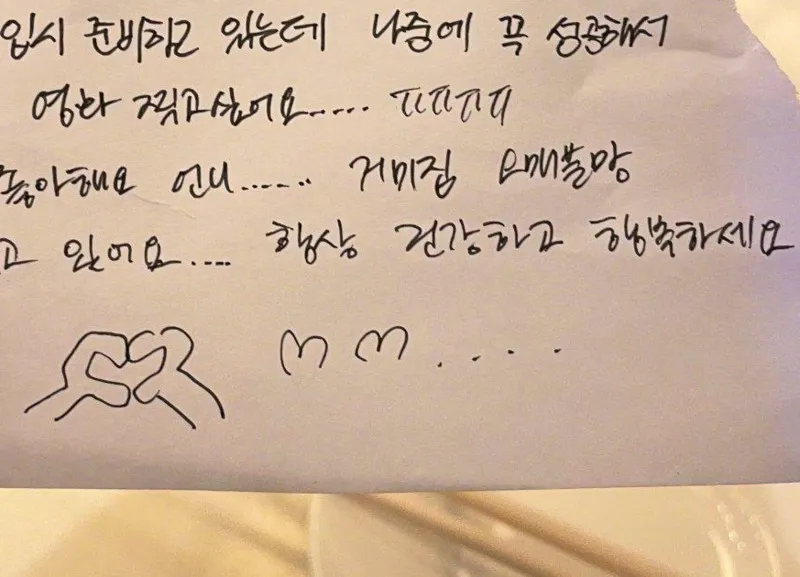 입시 준비하고 있는데 나중에 꼭 성공해서
영화 찍고싶어요..... ㅠㅠㅠㅠ
좋아해요 언니...... 거미집 오매불망
고 있어요.... 항상 건강하고 행복하세요
....